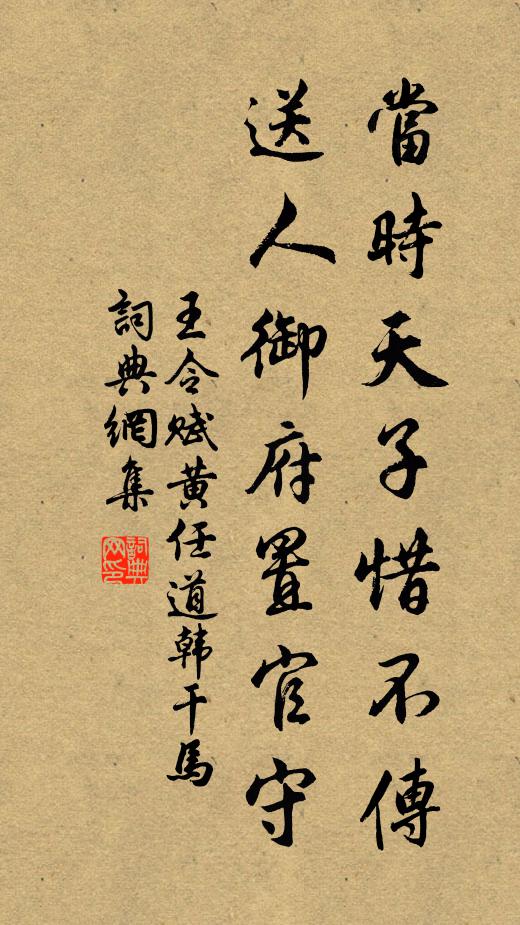 當時天子惜不傳
送人御府置官守
王令赋黄任道韩干馬
詞典網集
詞典网印